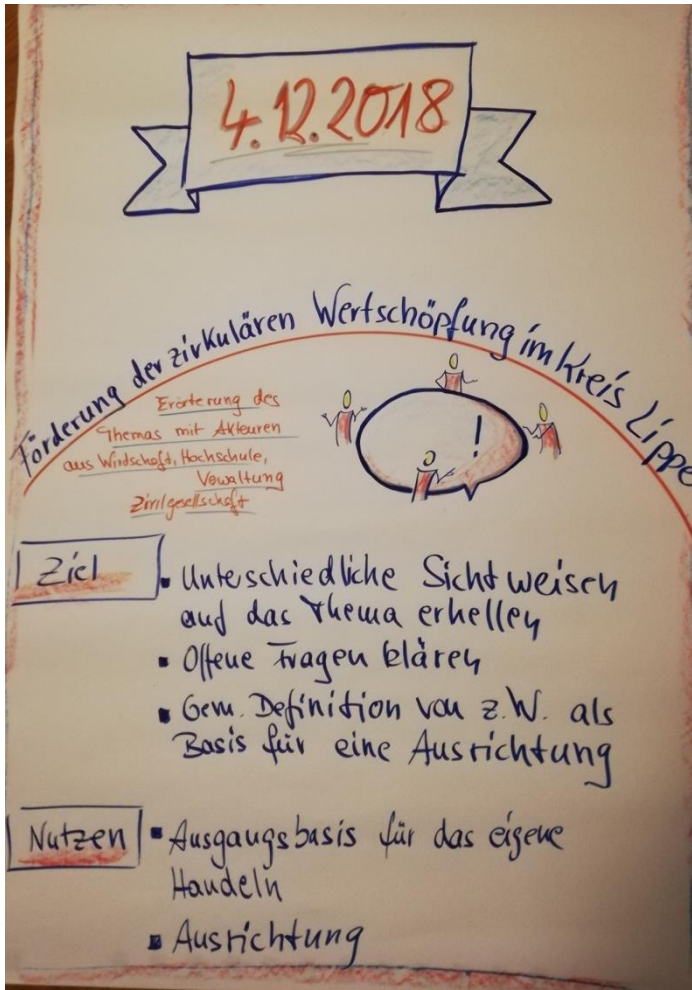 4.12.2018
Förderung der zirkulären Wertschöpfung im Kreis Lippe
Erörterung des
Themas mit Akteuren
aus Wirtschaft, Hochschule,
Verwaltung
Zivilgesellschaft
!
Ziel
▪ Unterschiedliche Sichtweisen
auf das Thema erhellen
▪ Offene Fragen klären
▪ Gem. Definition von z.W. als
Basis für eine Ausrichtung
Nutzen
▪ Ausgangsbasis für das eigene
Handeln
▪ Ausrichtung